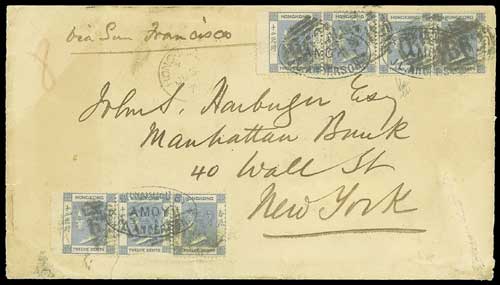 via San Francisco
HONGKONG HONGKONG HONGKONG HONGKONG
John S. Harburger Esq
Manhattan Bank
40 Wall St
New York
HONGKONG HONGKONG HONGKONG
AMOY
TWELVE CENTS TWELVE CENTS TWELVE CENTS